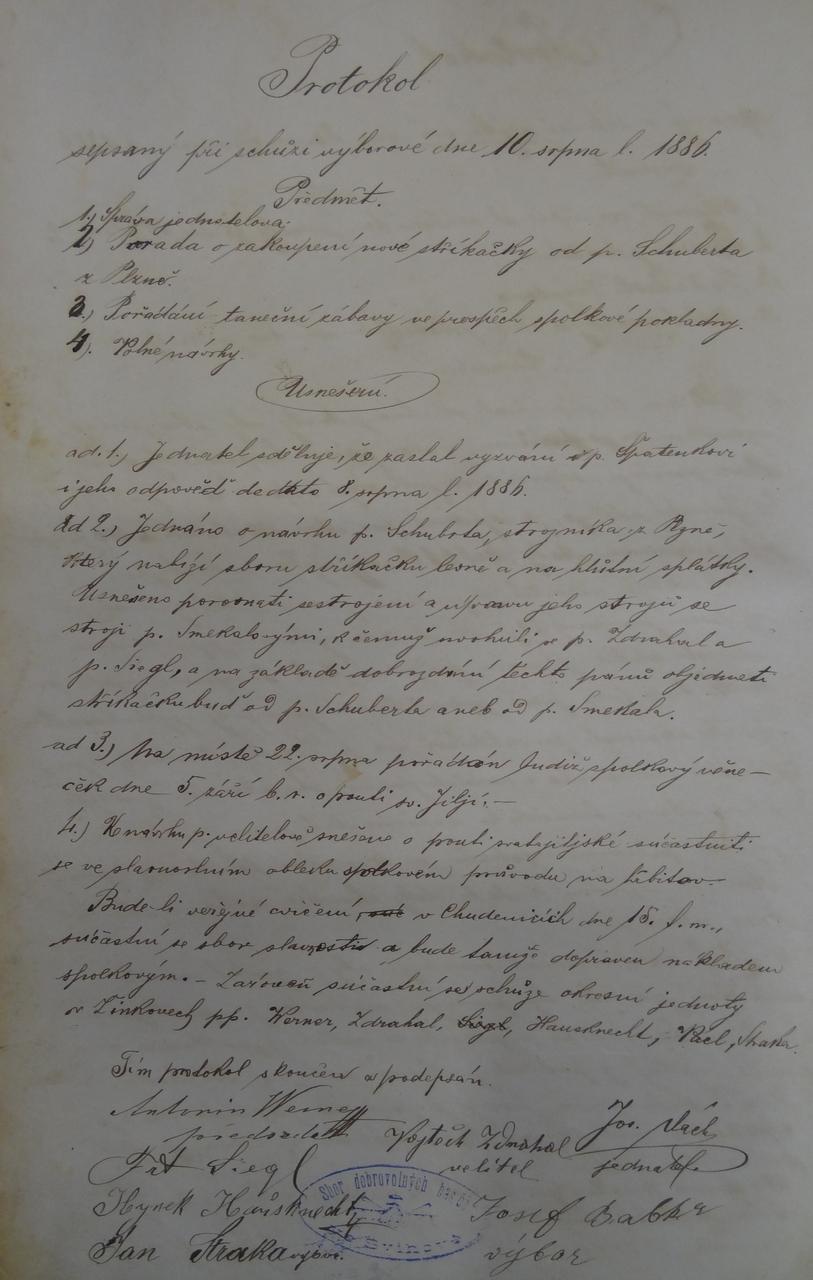 Protokol
sepsaný při schůzi výborové dne 10. srpna l. 1886.
Předmět.
1.) Správa jednatelova.
2.) Porada o zakoupení nové stříkačky od p. Schuberta
z Plzně.
3.) Pořádání taneční zábavy ve prospěch spolkové pokladny.
4.) Volné návrhy.
Usnešení.
ad. 1.) Jednatel sděluje, že zaslal vyzvání p. Špatenkovi
i jeho odpověď dedkto 8. srpna l. 1886.
ad 2.) Jednáno o návrhu p. Schubrta, strojníka z
který nabízí sboru stříkačku levně a na lhůtní splátky.
Usnešeno porovnati sestrojení a úpravu jeho strojů se
stroji p. Smekalovými, k čemuž uvolili se p. Zdrahal a
p. Siegl, a na základě dobrozdání těchto pánů objednati
stříkačku buď od p. Schuberta aneb od p. Smekala.
ad 3.) Na místě 22. srpna pořádán budiž spolkový věne-
ček dne 5. září b. r. o pouti sv. Jiljí. —
4.) K návrhu p. velitelově snešeno o pouti svatojiljské súčastniti
se ve slavnostním obleku spolkovém průvodu na hřbitov. —
Bude-li veřejné cvičení v Chudenicích dne 15. t. m.,
súčastní se sbor slavnosti a bude tamže dopraven nákladem
spolkovým. — Zároveň súčastní se schůze okresní jednoty
v Žinkovech pp. Werner, Zdrahal, Siegl, Hausknecht, Václ, Straka.
Tím protokol skončen a podepsán.
Antonín Werner
předseda
Vojtěch Zdrahal
velitel
Jos. Václ
jednatel
Vít Siegl
Hynek Hausknecht
Josef Babka
výbor
Jan Straka výbor.
Sbor dobrovolných hasičů